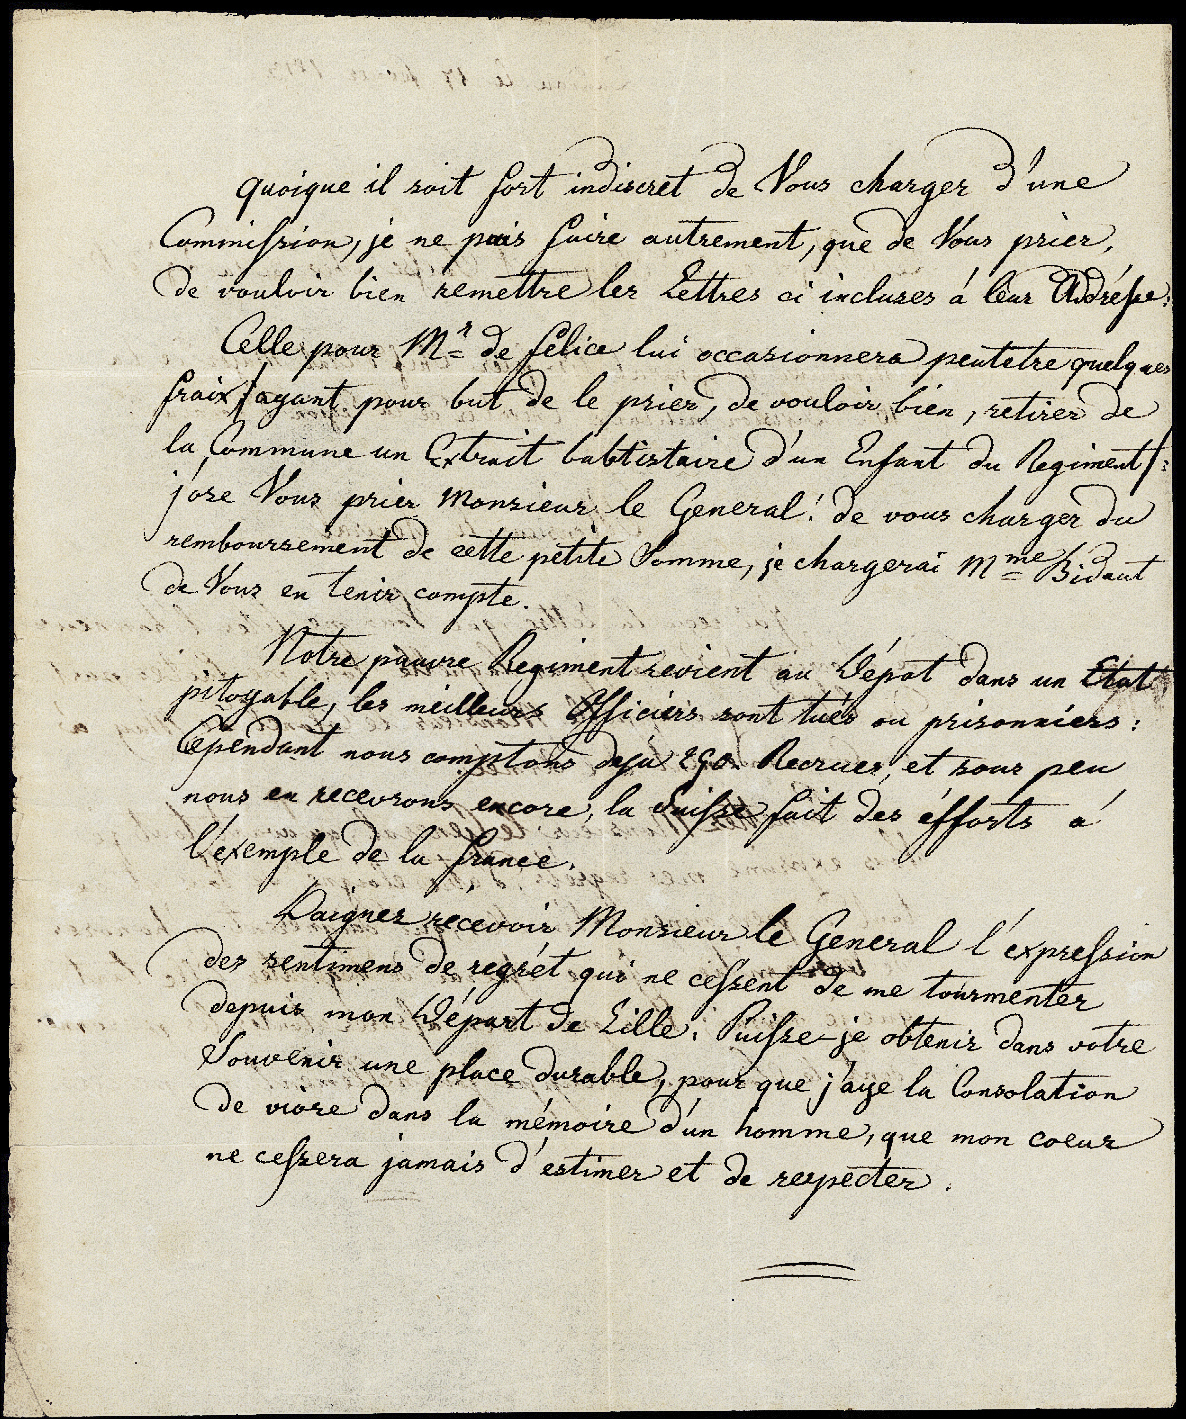 quoique il soit fort indiscret de Vous charger d'une
Commission, je ne puis faire autrement, que de Vous prier,
de vouloir bien remettre les Lettres ci incluses á leur Addrésse:
Celle pour Mr de felice lui occasionnera peutetre quelques
fraix /:ayant pour but de le prier, de vouloir bien, retirer de
la Commune un Extrait babtistaire d'un Enfant du Regiment/:
j'ose Vous prier Monsieur le General! de vous charger du
remboursement de cette petite Somme, je chargerai Mme Bidaut
de Vous en tenir compte.
Notre pauvre Regiment revient au Dépot dans un Etat
pitoyable, les meilleurs Officiers sont tués ou prisonniers:
Cependant nous comptons deja 290. Recrues, et sous peu
nous en recevrons encore, la Suisse fait des éfforts á
l'éxemple de la france.
Daignez récevoir Monsieur le General l'éxpression
des sentimens de regrét qui ne cessent de me tourmenter
depuis mon Départ de Lille; Puisse-je obtenir dans votre
Souvenir une place durable, pour que j'aye la Consolation
de vivre dans la mémoire d'un homme, que mon coeur
ne cessera jamais d'estimer et de respecter.